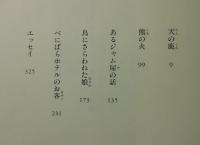 天の鹿 9
熊の火 99
あるジャム屋の話 135
鳥にさらわれた娘 173
べにばらホテルのお客 231
エッセイ 325